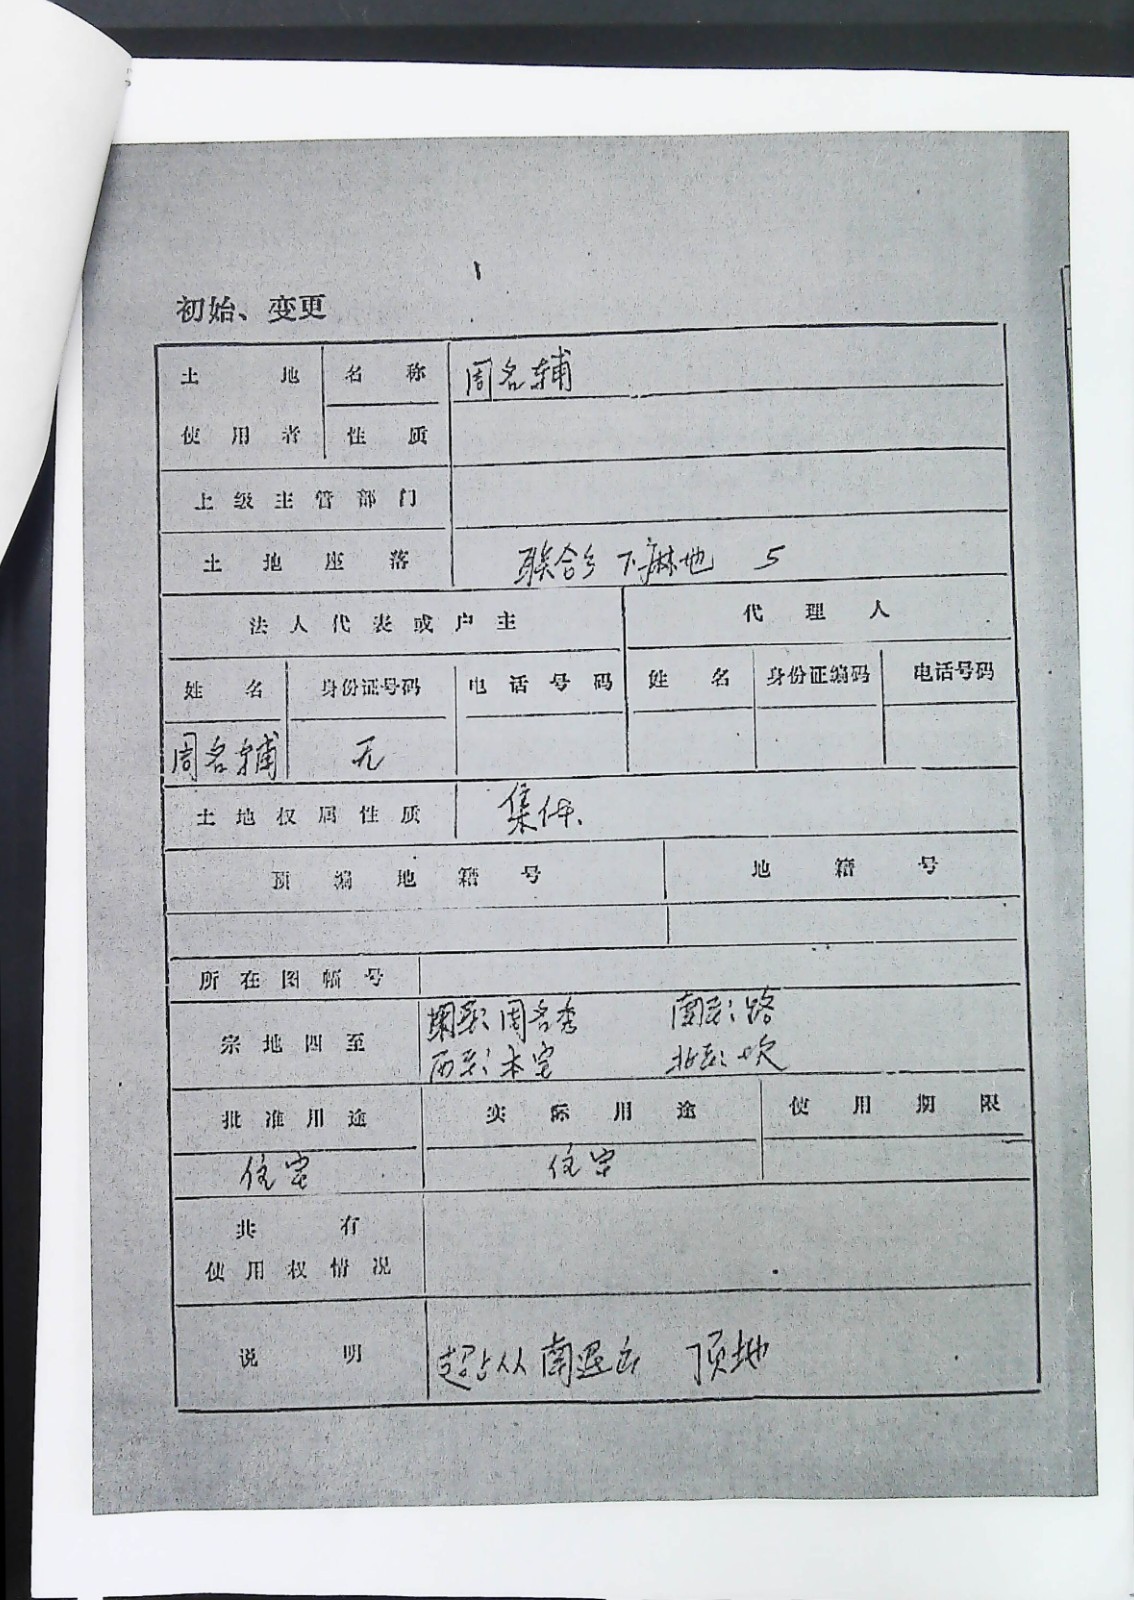 初始、变更
土地 名称 周名辅
使用者 性质
上级主管部门
土地座落 联合乡 下麻地 5
法人代表或户主 代理人
姓名 身份证号码 电话号码 姓名 身份证编码 电话号码
周名辅 无
土地权属性质 集体
预编地籍号 地籍号
所在图幅号
宗地四至 周名秀 南至: 路
西至: 本宅 北至:
批准用途 实际用途 使用期限
住宅 住宅
共有
使用权情况
说明 从南 顶地